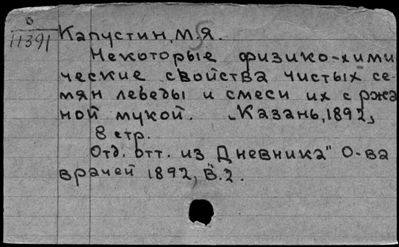 в
11391
Капустин, М.Я.
Некоторые физико-хими
ческие свойства чистых се-
мян лебеды и смеси их с ржа
ной мукой. Казань, 1892,
8 стр.
Отд. отт. из Дневника" О-ва
врачей 1892, В.2.